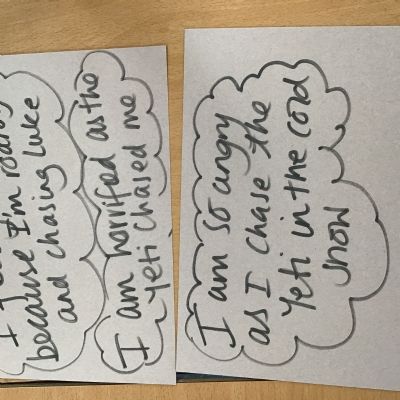 because I'm roaring
and chasing Luke
I am horrified as the
yeti chased me
I am so angry
as I chase the
Yeti in the cold
snow